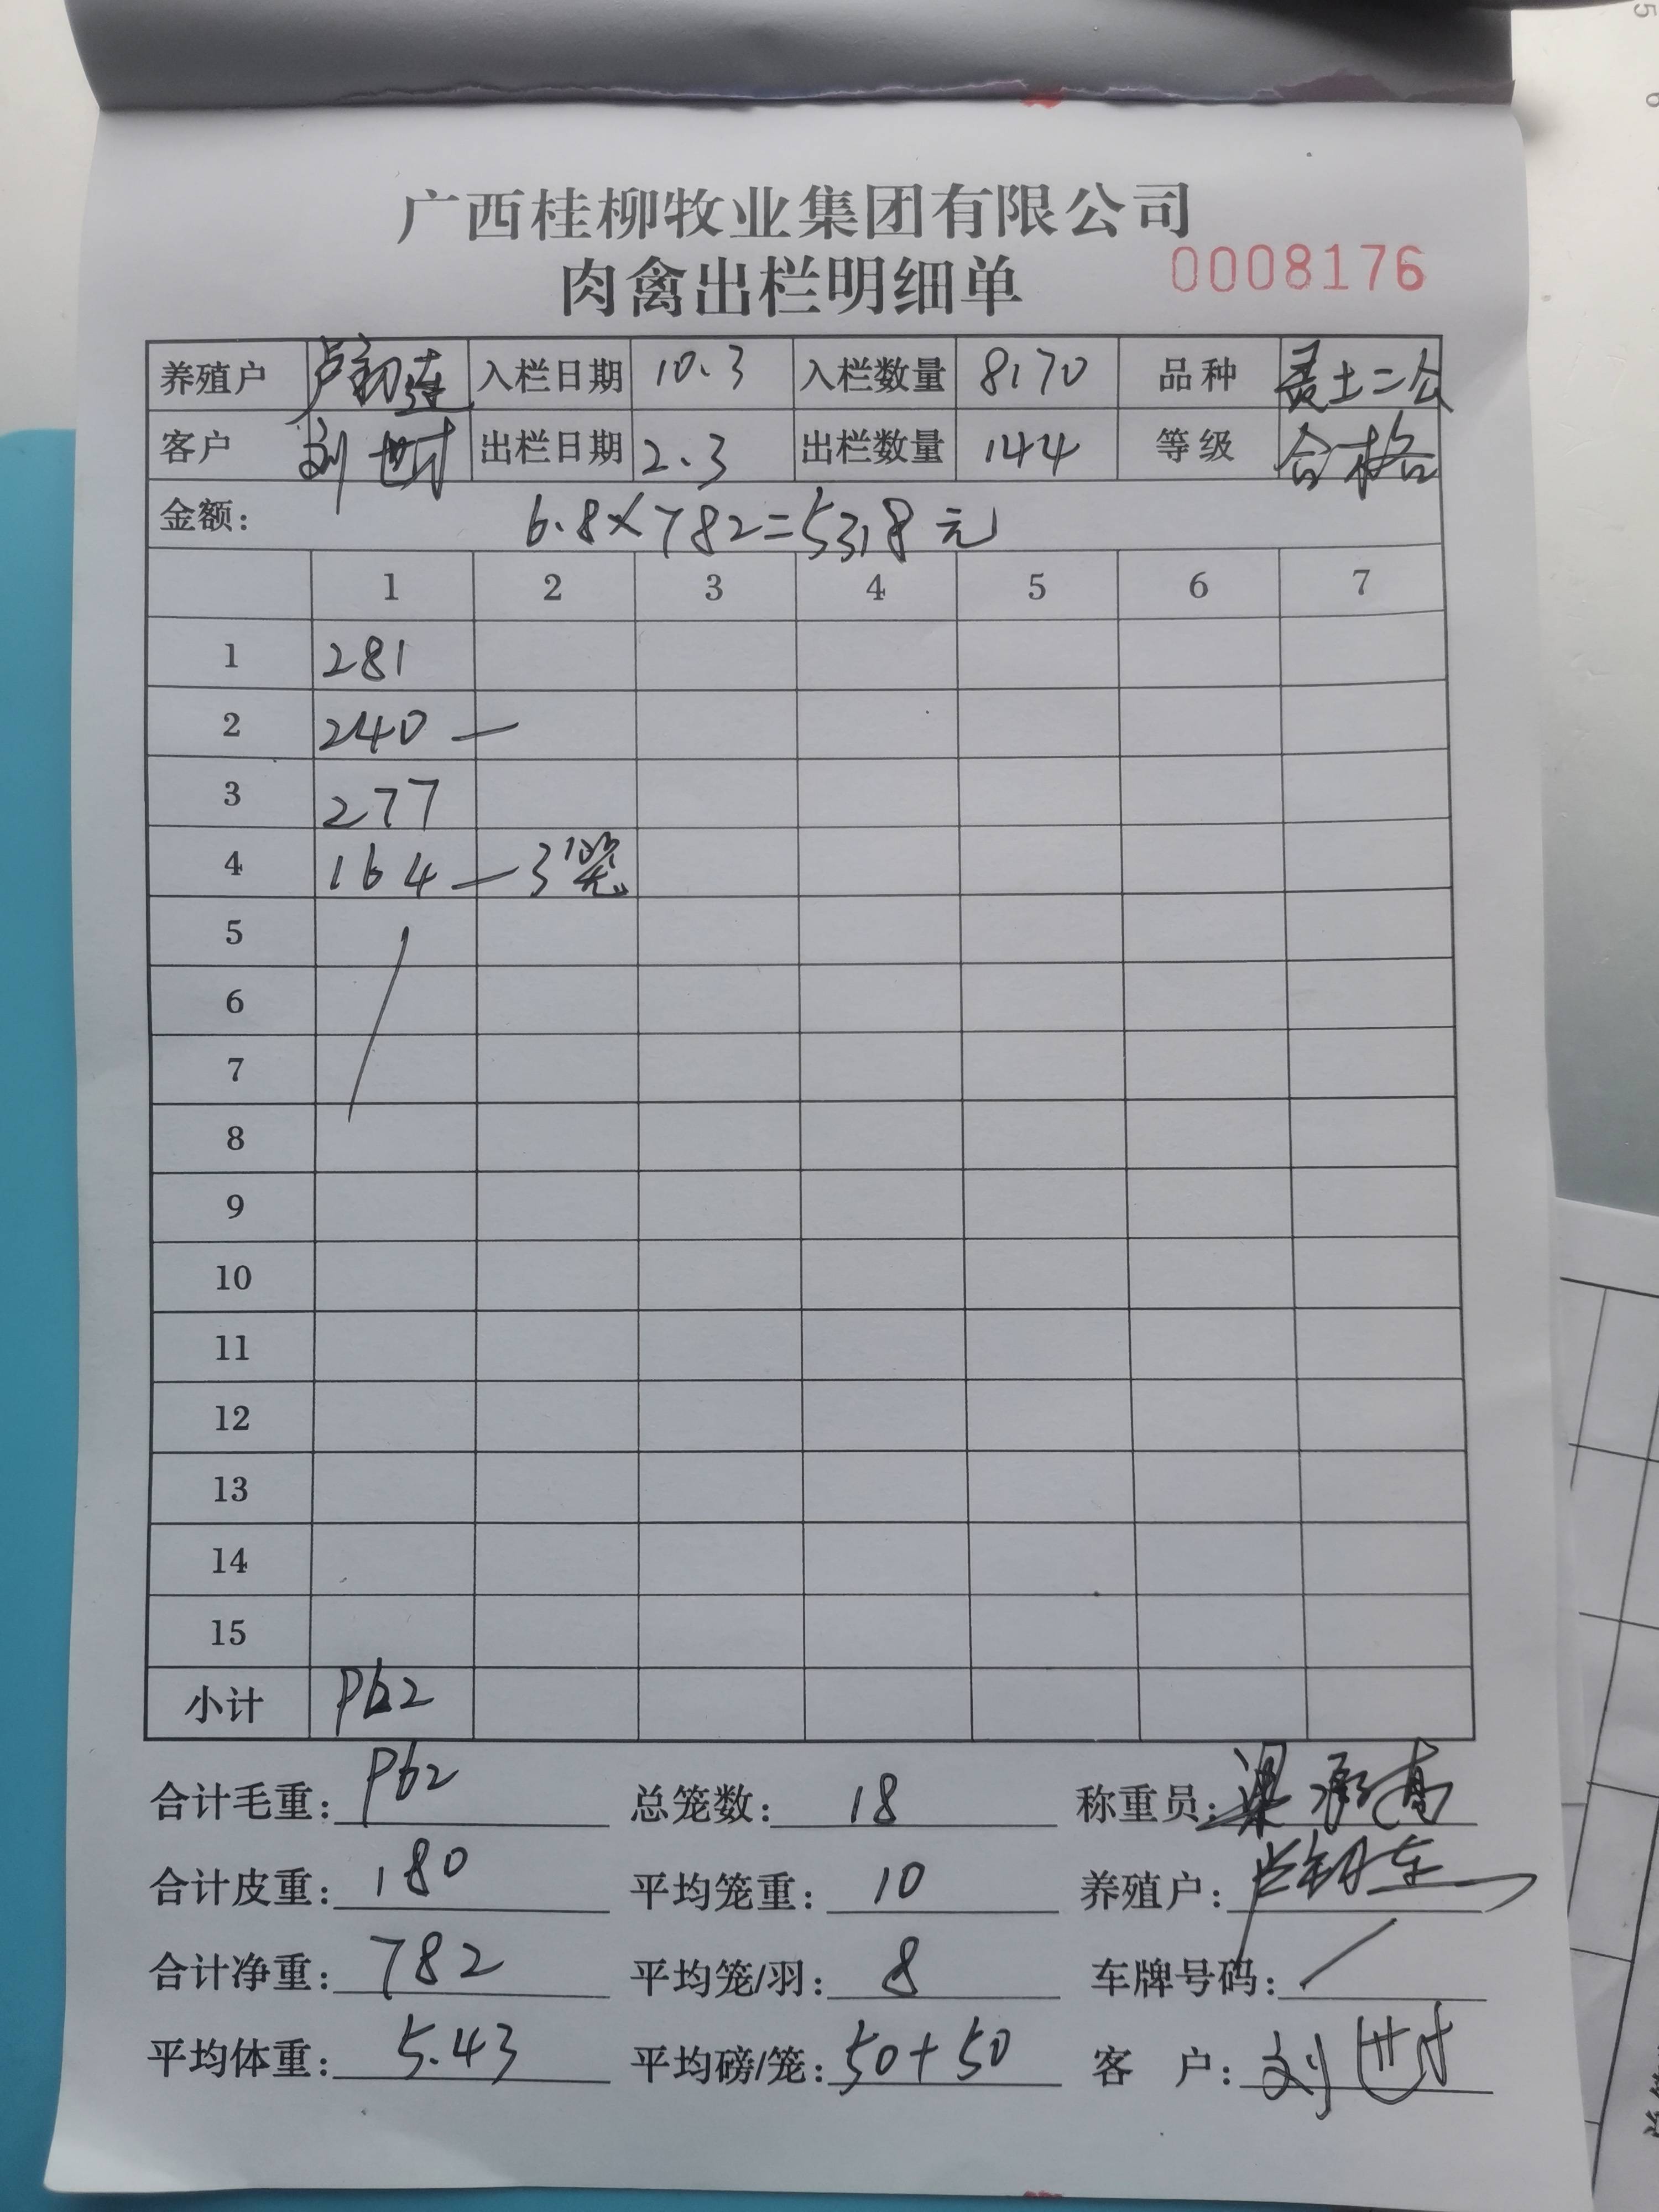 广西桂柳牧业集团有限公司
肉禽出栏明细单 0008176
养殖户 卢 连 入栏日期 10.3 入栏数量 8170 品种 土二公
客户 刘世才 出栏日期 2.3 出栏数量 144 等级 合格
金额: 6.8×782=5318元
1 2 3 4 5 6 7
1 281
2 240 —
3 277
4 164 — 3笼
5
6
7
8
9
10
11
12
13
14
15
小计 962
合计毛重: 962 总笼数: 18 称重员: 梁承高
合计皮重: 180 平均笼重: 10 养殖户:
合计净重: 782 平均笼/羽: 8 车牌号码: /
平均体重: 5.43 平均磅/笼: 50+50 客 户: 刘世才